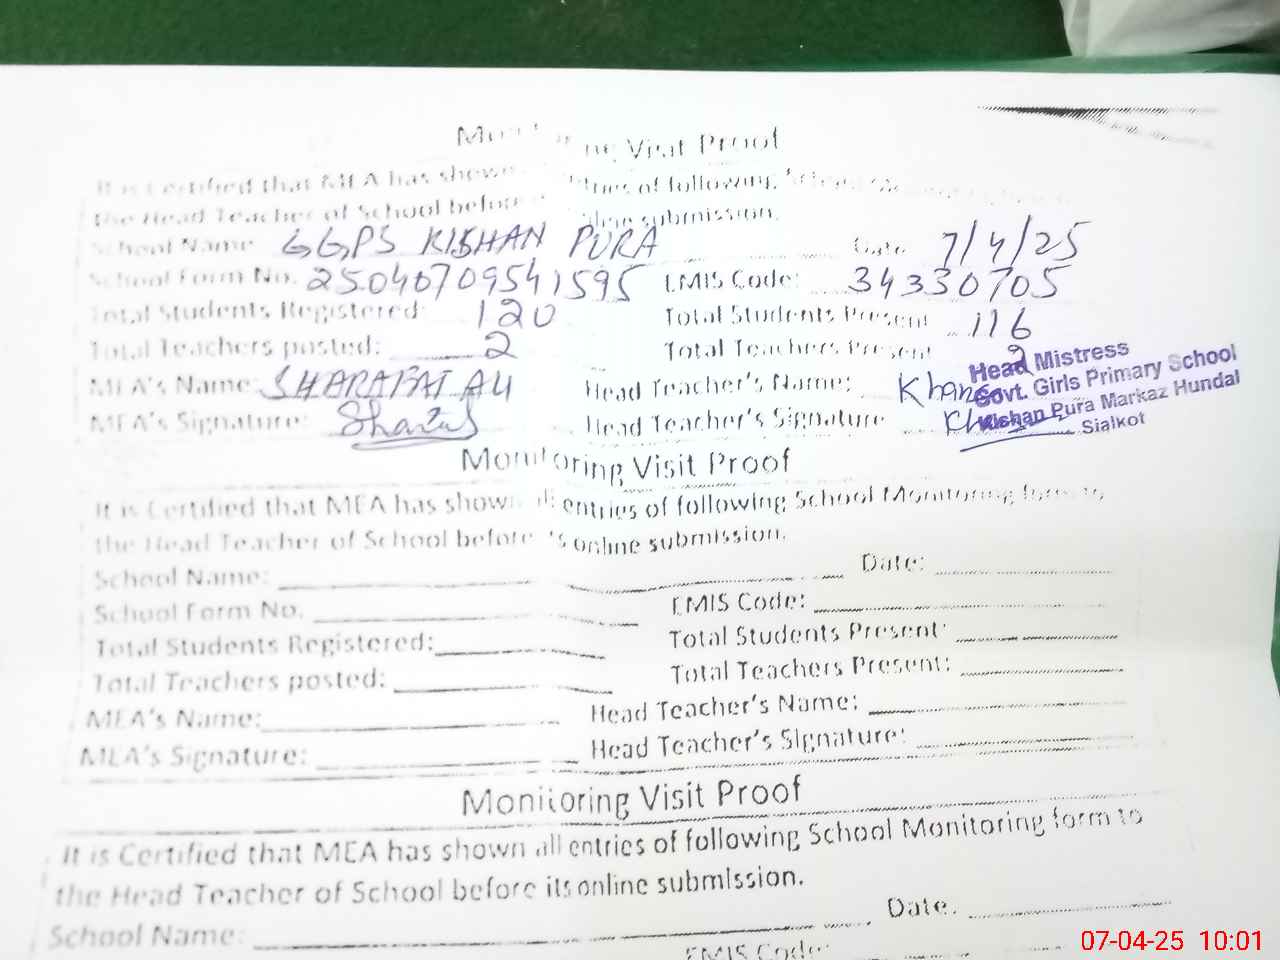 Monitoring Visit Proof
It is Certified that MEA has shown entries of following School
the Head Teacher of School before online submission.
School Name GGPS KISHAN PURA Date 7/4/25
School Form No. 25040709541595 EMIS Code: 34330705
Total Students Registered: 120 Total Students Present 116
Total Teachers posted: 2 Total Teachers Present 2
MEA's Name: SHARAFAT ALI Head Teacher's Name:
MEA's Signature: Head Teacher's Signature
Head Mistress
Govt. Girls Primary School
Kishan Pura Markaz Hundal
Sialkot
Monitoring Visit Proof
It is Certified that MEA has shown all entries of following School Monitoring form to
the Head Teacher of School before its online submission.
School Name: Date:
School Form No. EMIS Code:
Total Students Registered: Total Students Present:
Total Teachers posted: Total Teachers Present:
MEA's Name: Head Teacher's Name:
MEA's Signature: Head Teacher's Signature:
Monitoring Visit Proof
It is Certified that MEA has shown all entries of following School Monitoring form to
the Head Teacher of School before its online submission.
School Name: Date.
EMIS Code:
07-04-25 10:01